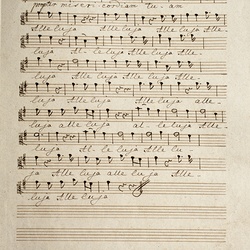 misericordiam tu - am
Alleluja Alleluja Alle -
luja Alleluja Alleluja Alle -
luja Al - le - luja Alle -
luja Alleluja Alleluja Allelu
ja Alleluja Alleluja alle -
luja alle luja al - le luja Alle -
luja Al - le luja Alle lu -
ja Alle luja alle luja Alle -
luja Alle luja